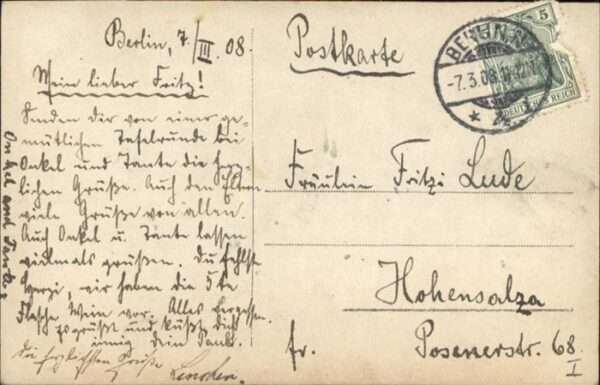 Berlin, 7./III 08.
Mein lieber Fritz!
Senden dir von einer ge-
mütlichen Tafelrunde bei
Onkel und Tante die herz-
lichen Grüße. Auch den Eltern
viele Grüße von allen.
Auch Onkel u. Tante lassen
vielmals grüßen. Du fehlst
wir haben die 5te
Flasche Wein vor. Alles Vergessen.
Es grüßt und küßt dich
innig Dein
die herzlichsten Grüße
Lenchen.
Onkel und Tante
Postkarte
BERLIN, N.
-7.3.08
5
DEUTSCHES REICH
Fräulein Fritzi Lude
Hohensalza
fr. Posenerstr. 68.
I